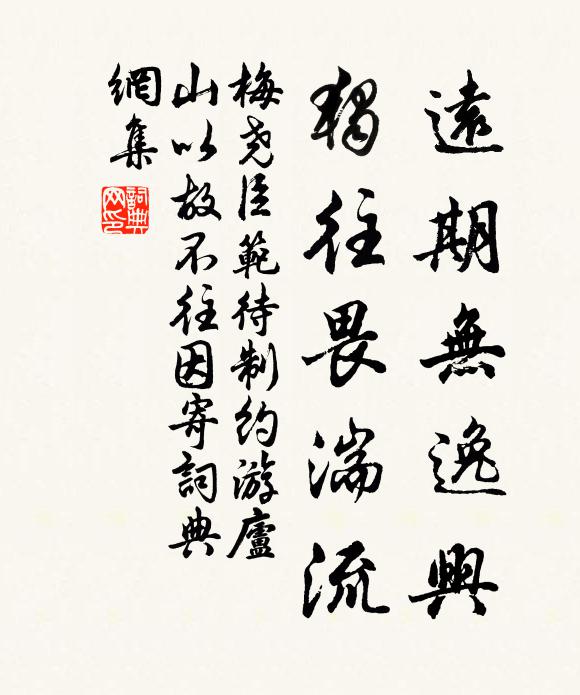 遠期無逸興
獨往畏湍流
梅堯臣範待制約游廬
山以故不往因寄詞典
網集
詞典
网印